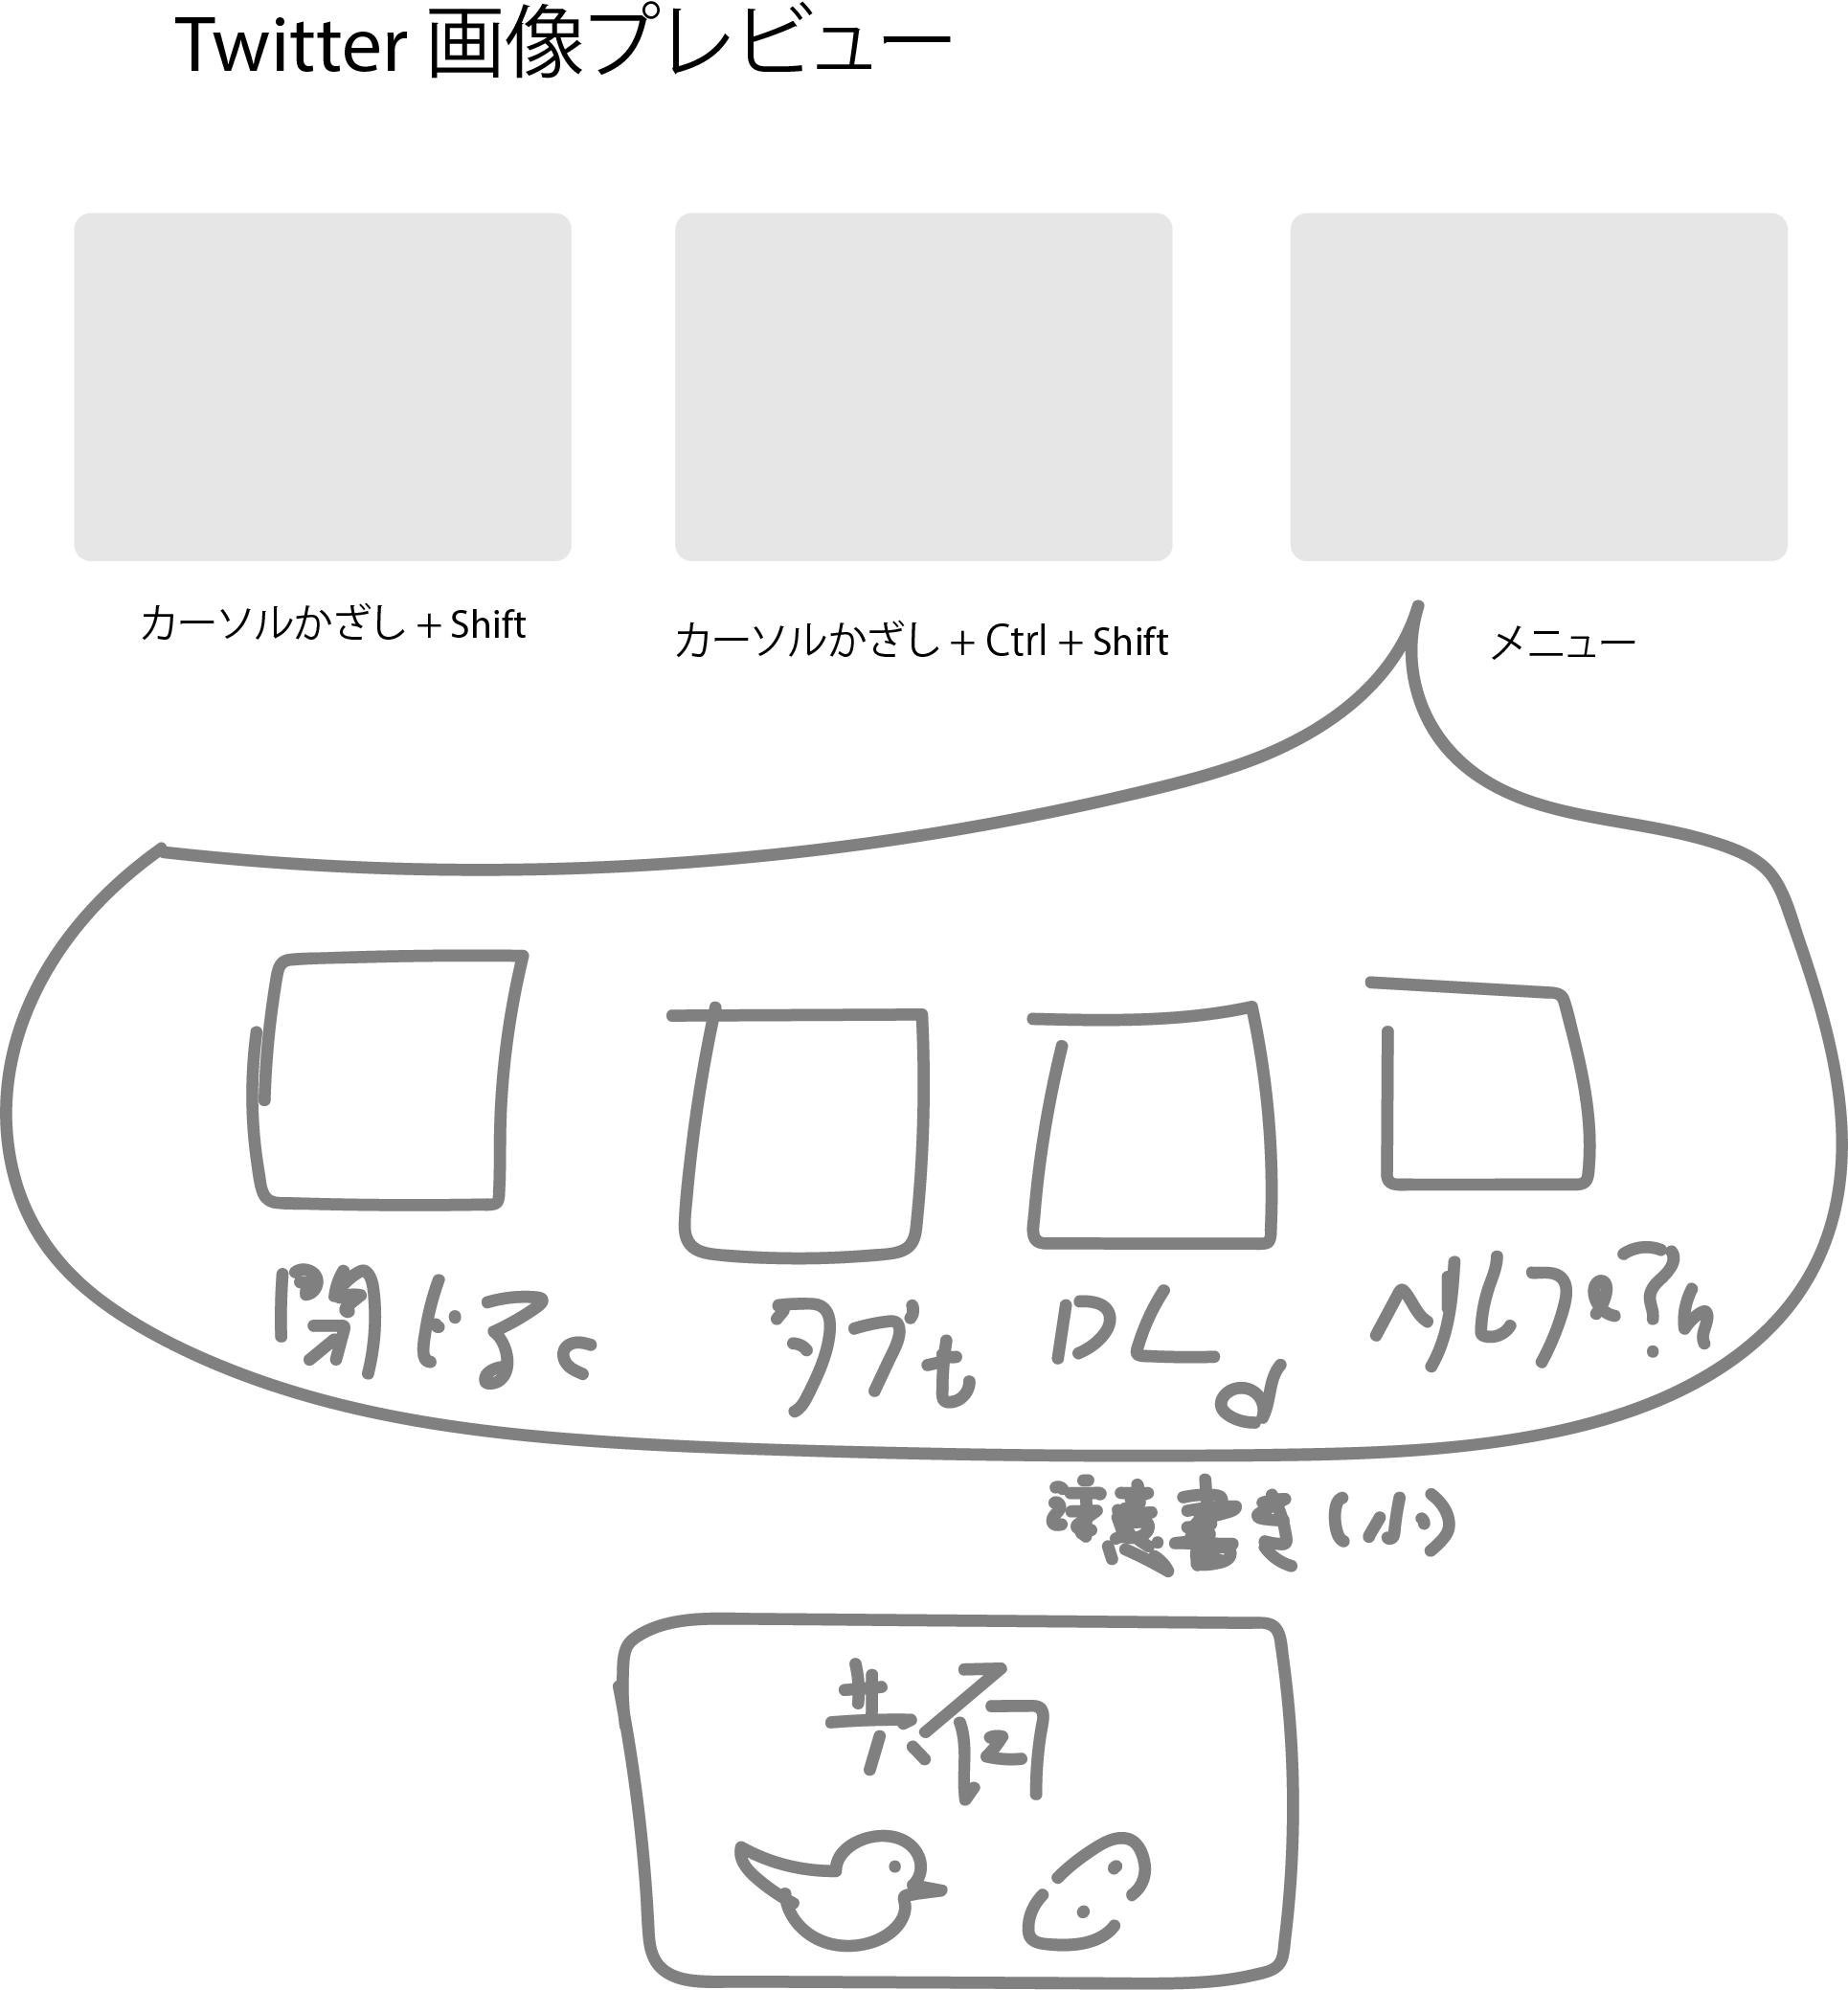 Twitter 画像プレビュー
カーソルかざし + Shift
カーソルかざし + Ctrl + Shift
メニュー
閉じる c
タブ t
DL d
ヘルプ ? h
(小)
共有